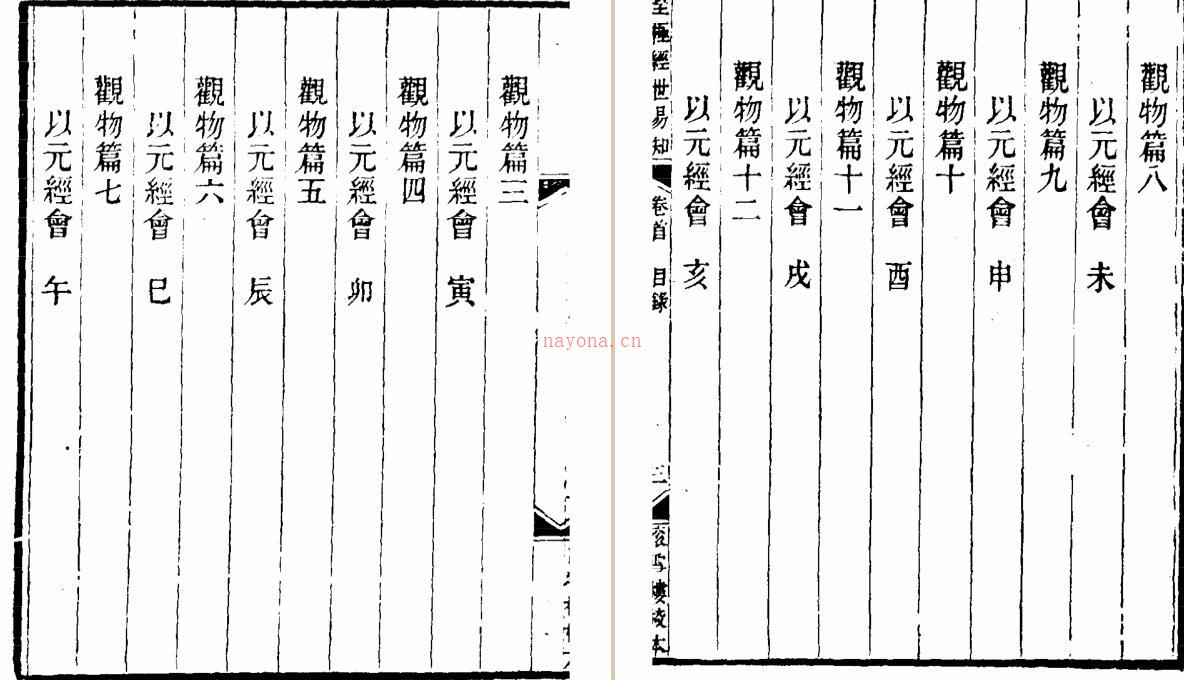 觀物篇三
以元經會 寅
觀物篇四
以元經會 卯
觀物篇五
以元經會 辰
觀物篇六
以元經會 巳
觀物篇七
以元經會 午
觀物篇八
以元經會 未
觀物篇九
以元經會 申
觀物篇十
以元經會 酉
觀物篇十一
以元經會 戌
觀物篇十二
以元經會 亥
極經世易知 卷首 目錄 三
nayona.cn